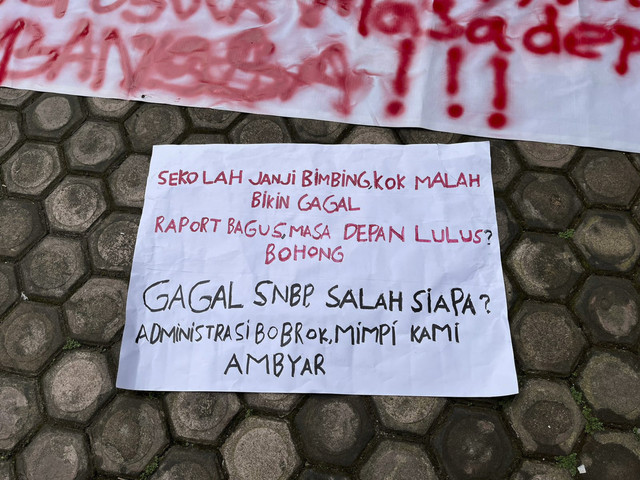 Masa dep
SEKOLAH JANJI BIMBING, KOK MALAH
BIKIN GAGAL
RAPORT BAGUS, MASA DEPAN LULUS?
BOHONG
GAGAL SNBP SALAH SIAPA?
ADMINISTRASI BOBROK, MIMPI KAMI
AMBYAR